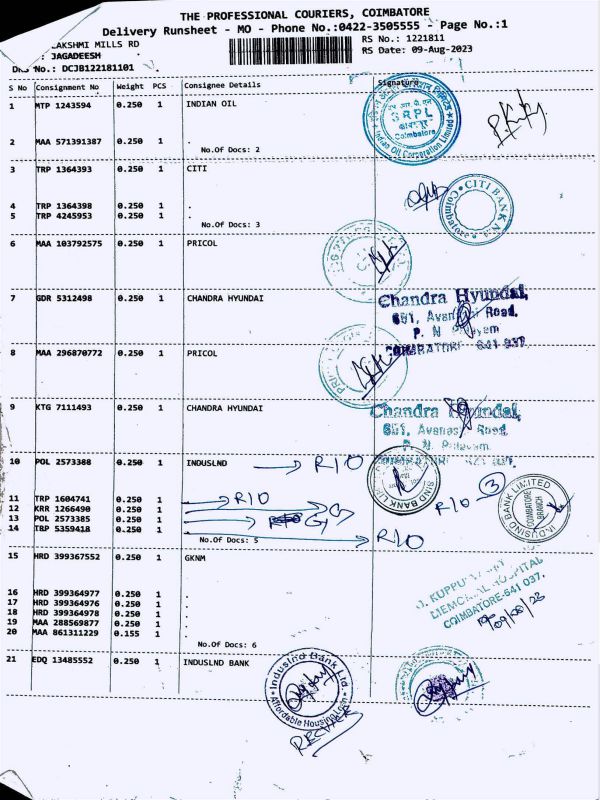 THE PROFESSIONAL COURIERS, COIMBATORE
Delivery Runsheet - MO - Phone No.:0422-3505555 - Page No.:1
LAKSHMI MILLS RD
RS No.: 1221811
: JAGADEESH
RS Date: 09-Aug-2023
DRS No.: DCJB122181101
S No Consignment No Weight PCS Consignee Details Signature
1 MTP 1243594 0.250 1 INDIAN OIL
SRPL
Coimbatore
Indian Oil Corporation Limited
2 MAA 571391387 0.250 1 .
No.Of Docs: 2
3 TRP 1364393 0.250 1 CITI
CITI BANK N
Coimbatore
4 TRP 1364398 0.250 1 .
5 TRP 4245953 0.250 1 .
No.Of Docs: 3
6 MAA 103792575 0.250 1 PRICOL
7 GDR 5312498 0.250 1 CHANDRA HYUNDAI
Chandra Hyundai,
651, Avanashi Road,
P. N. Palayam
COIMBATORE - 641 037.
8 MAA 296870772 0.250 1 PRICOL
9 KTG 7111493 0.250 1 CHANDRA HYUNDAI
Chandra Hyundai,
651, Avanashi Road,
P. N. Palayam,
10 POL 2573388 0.250 1 INDUSLND R10
11 TRP 1604741 0.250 1 . R10
12 KRR 1266490 0.250 1 . G
13 POL 2573385 0.250 1 . G
14 TRP 5359418 0.250 1 . R10
No.Of Docs: 5
R10 3
INDUSIND BANK LIMITED
COIMBATORE
BRANCH
15 HRD 399367552 0.250 1 GKNM
MEMORIAL HOSPITAL
COIMBATORE-641 037.
09/08/23
16 HRD 399364977 0.250 1 .
17 HRD 399364976 0.250 1 .
18 HRD 399364978 0.250 1 .
19 MAA 288569877 0.250 1 .
20 MAA 861311229 0.155 1 .
No.Of Docs: 6
21 EDQ 13485552 0.250 1 INDUSLND BANK
IndusInd Bank Ltd.
Affordable Housing Loan